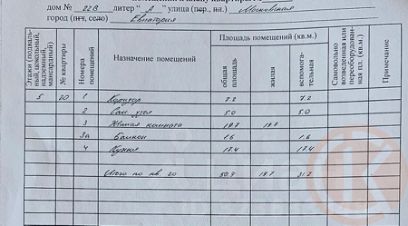 дом № 22В литер "А" улица (пер., пл.) Московская
город (пгт, село) Евпатория
Этажи (подвальный, цокольный, надземный, мансардный)
№ квартиры
Номера помещений
Назначение помещений
Площадь помещений (кв.м.)
общая площадь
жилая
вспомогательная
Самовольно возведенная или переоборудованная пл. (кв.м.)
Примечание
5 20 1 Коридор 7.2 7.2
2 Сан. узел 5.0 5.0
3 Жилая комната
3а Балкон 1.6 1.6
4 Кухня 17.4 17.4
Итого по кв. 20 50.9 31.2